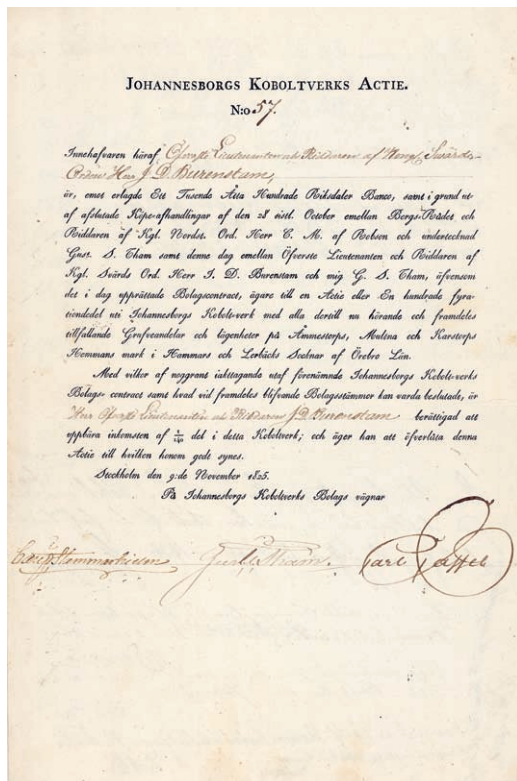 JOHANNESBORGS KOBOLTVERKS ACTIE.
N:o 57.
Innehafvaren häraf Öfverste Lieutenanten och Riddaren af Kongl. Swärds-
Orden Herr J. D. Burenstam,
är, emot erlagde Ett Tusende Åtta Hundrade Riksdaler Banco, samt i grund ut-
af afslutade Köpe-afhandlingar af den 28 sistl. October emellan Bergs-Rådet och
Riddaren af Kgl. Nordst. Ord. Herr C. M. af Robson och undertecknad
Gust. S. Tham samt denne dag emellan Öfverste Lieutenanten och Riddaren af
Kgl. Svärds Ord. Herr J. D. Burenstam och mig G. S. Tham, äfvensom
det i dag upprättade Bolagscontract, ägare till en Actie eller En hundrade fyra-
tiondedel uti Johannesborgs Kobolt-verk med alla dertill nu hörande och framdeles
tillfallande Grufveandelar och lägenheter på Åmmestorps, Mulina och Karstorps
Hemmans mark i Hammars och Lerbäcks Socknar af Örebro Län.
Med vilkor af noggrant iakttagande utaf förenämnde Johannesborgs Kobolt-verks
Bolags-contract samt hvad vid framdeles blifvande Bolagsstämmor kan varda beslutade, är
Herr Öfverste Lieutenanten och Riddaren J. D. Burenstam berättigad att
uppbära inkomsten af 1/140 del i detta Koboltverk; och äger han att öfverlåta denna
Actie till hvilken honom godt synes.
Stockholm den 9:de November 1825.
På Johannesborgs Koboltverks Bolags vägnar
Gust. S. Tham.